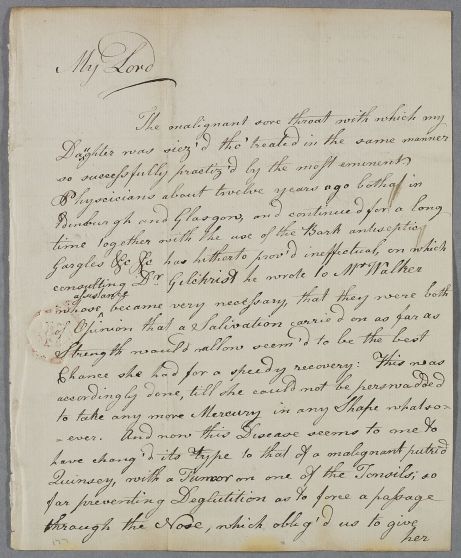 My Lord
The malignant sore throat with which my
Daughter was siez'd tho' treated in the same manner
so successfully practiz'd by the most eminent
Physcicians about twelve years ago both in
Edinburgh and Glasgow, and continued for a long
time together with the use of the Bark antiseptic
Gargles &c &c has hitherto prov'd ineffectual, on which
consulting Dr Gilchrist he wrote to Mr Walker
assistance
whose ^ became very necessary, that they were both
of Opinion that a Salivation carried on as far as
Strength would allow seem'd to be the best
Chance she had for a speedy recovery: This was
accordingly done, till she could not be perswadded
to take any more Mercury in any Shape whatso-
-ever. And now this Disease seems to me to
have chang'd its type to that of a malignant putrid
Quinsey, with a Tumor on one of the Tonsils; so
far preventing Deglutition as to force a passage
through the Nose, which oblig'd us to give
her